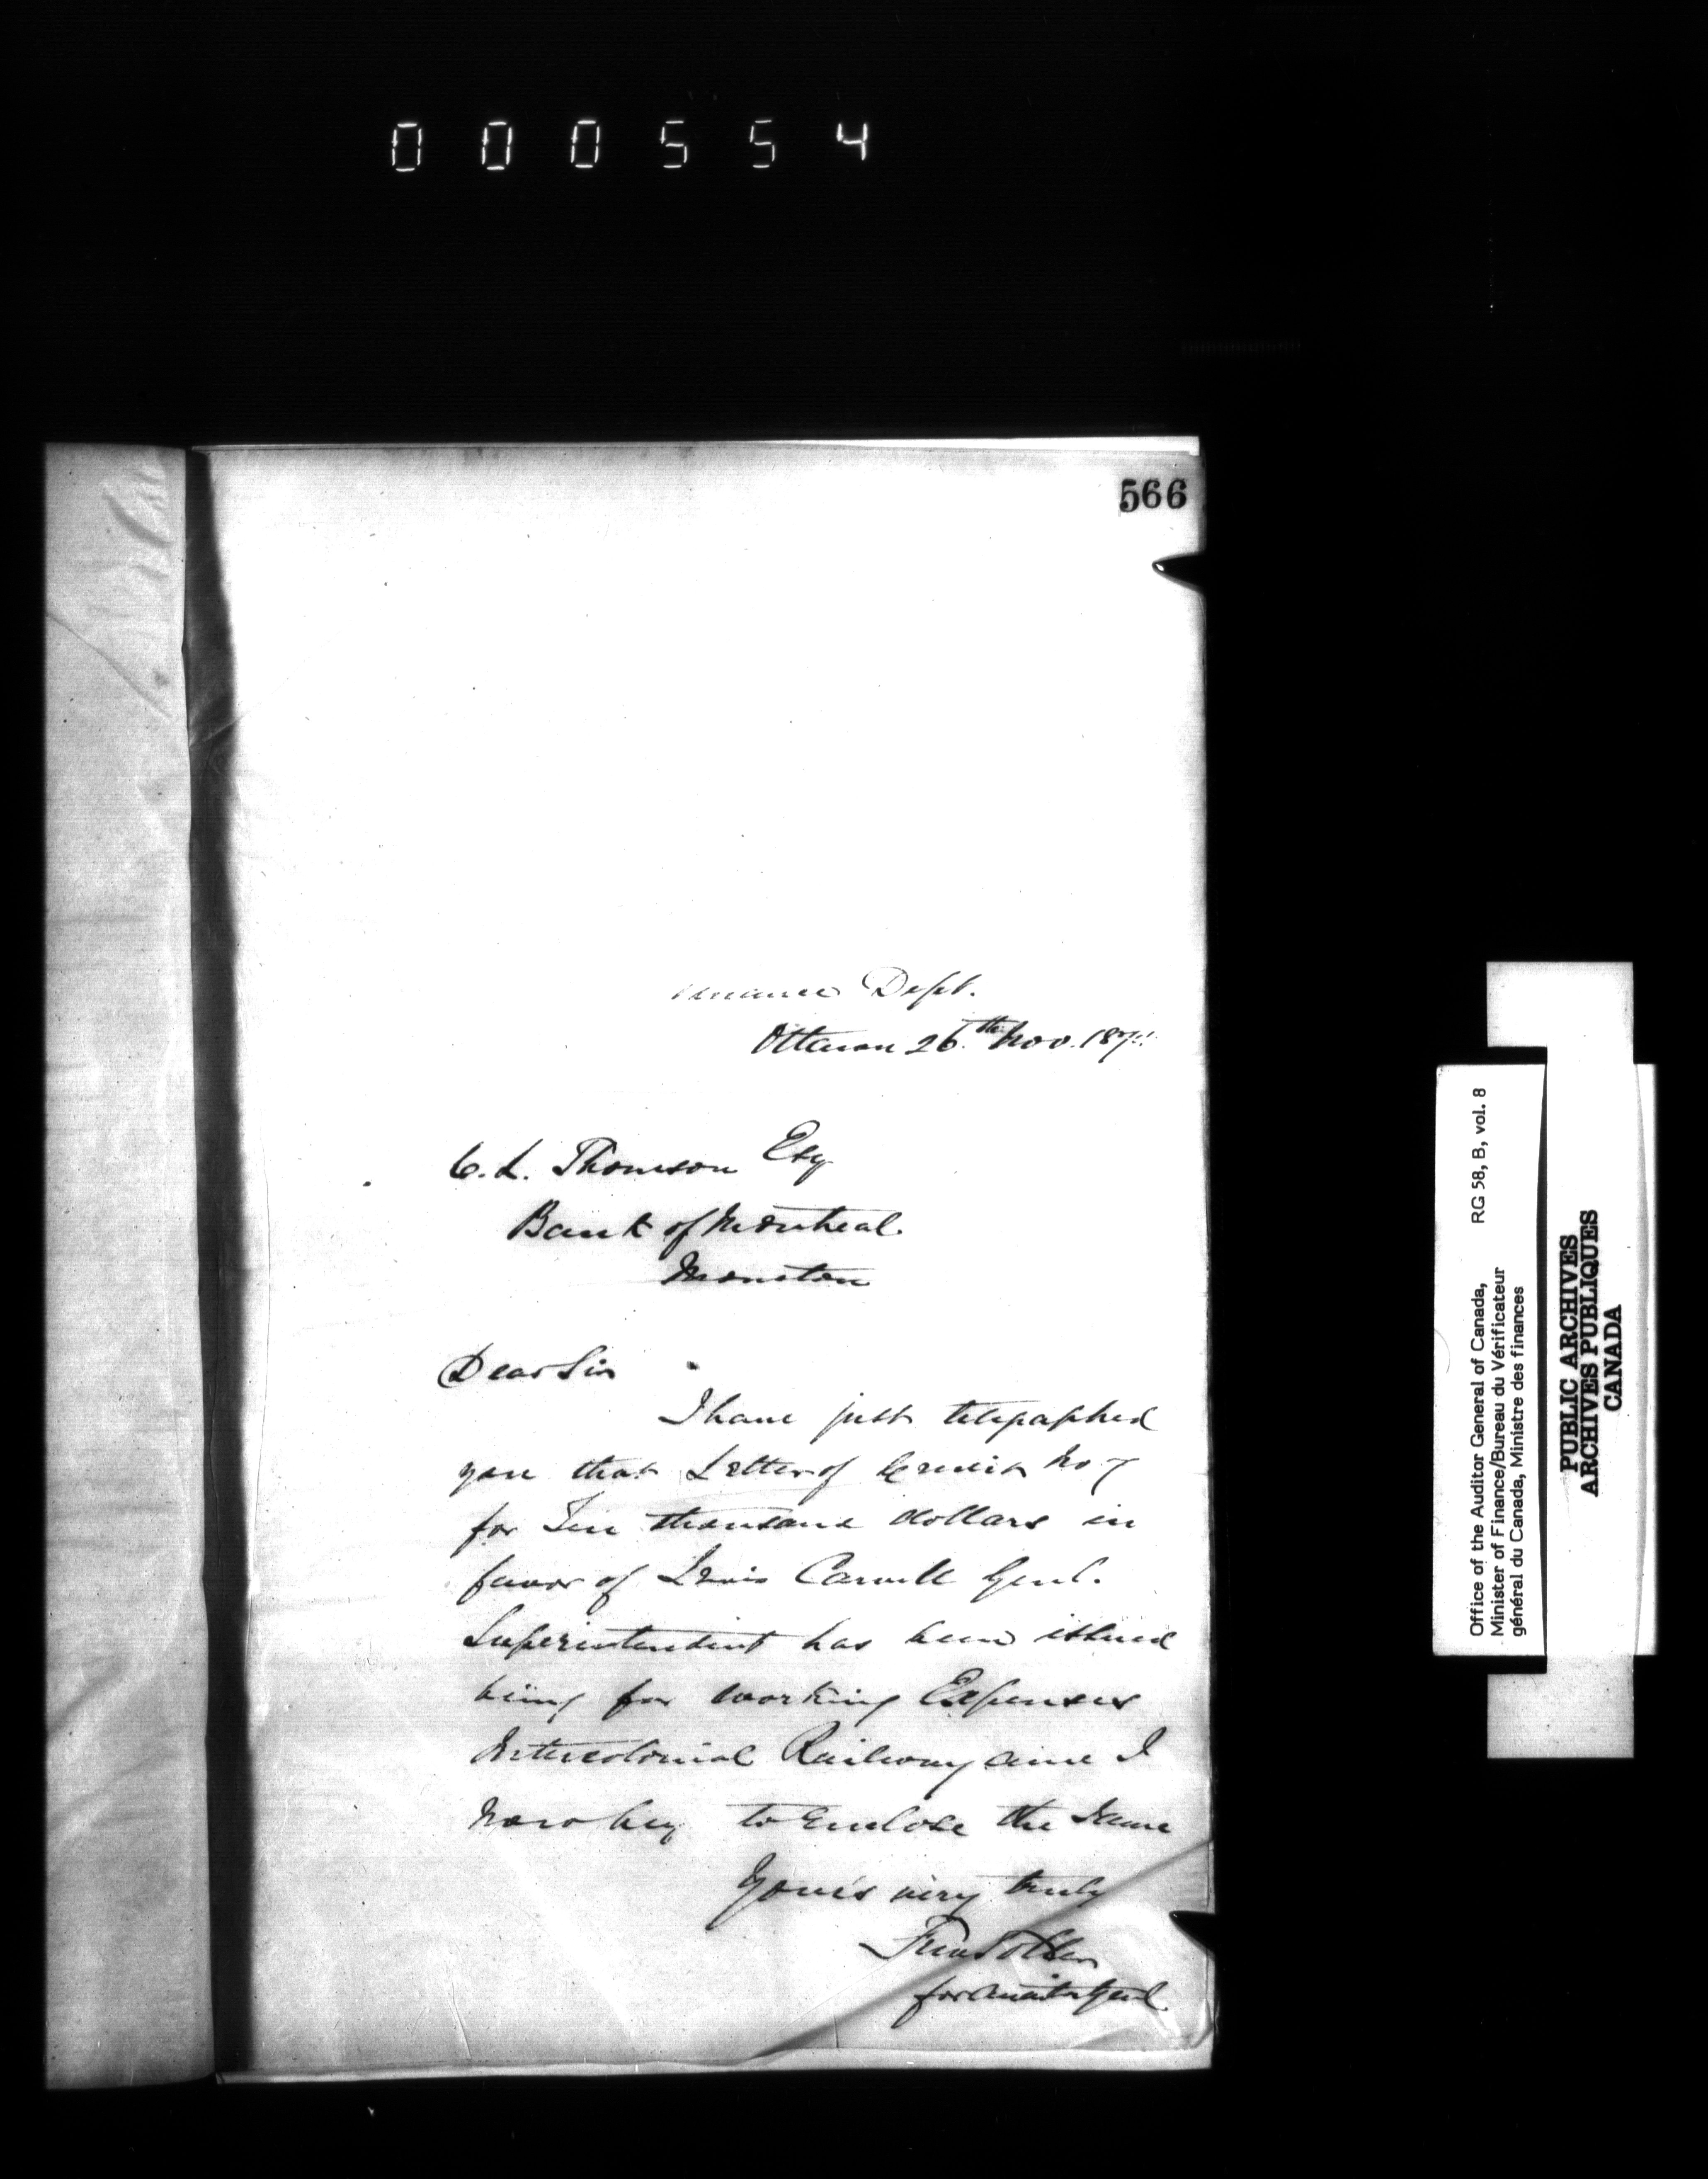 000554
566
Finance Dept.
Ottawa 26th Nov. 187
C. L. Thomson Esq
Bank of Montreal.
Moncton
Dear Sir
I have just telegraphed
you that Letter of Credit No 7
for Ten thousand dollars in
favor of Lewis Carvell Genl.
Superintendent has been issued
being for working Expenses
Intercolonial Railway and I
now beg to enclose the same
Yours very truly
for Auditor Genl
Office of the Auditor General of Canada, RG 58, B, vol. 8
Minister of Finance/Bureau du Vérificateur
général du Canada, Ministre des finances
PUBLIC ARCHIVES
ARCHIVES PUBLIQUES
CANADA